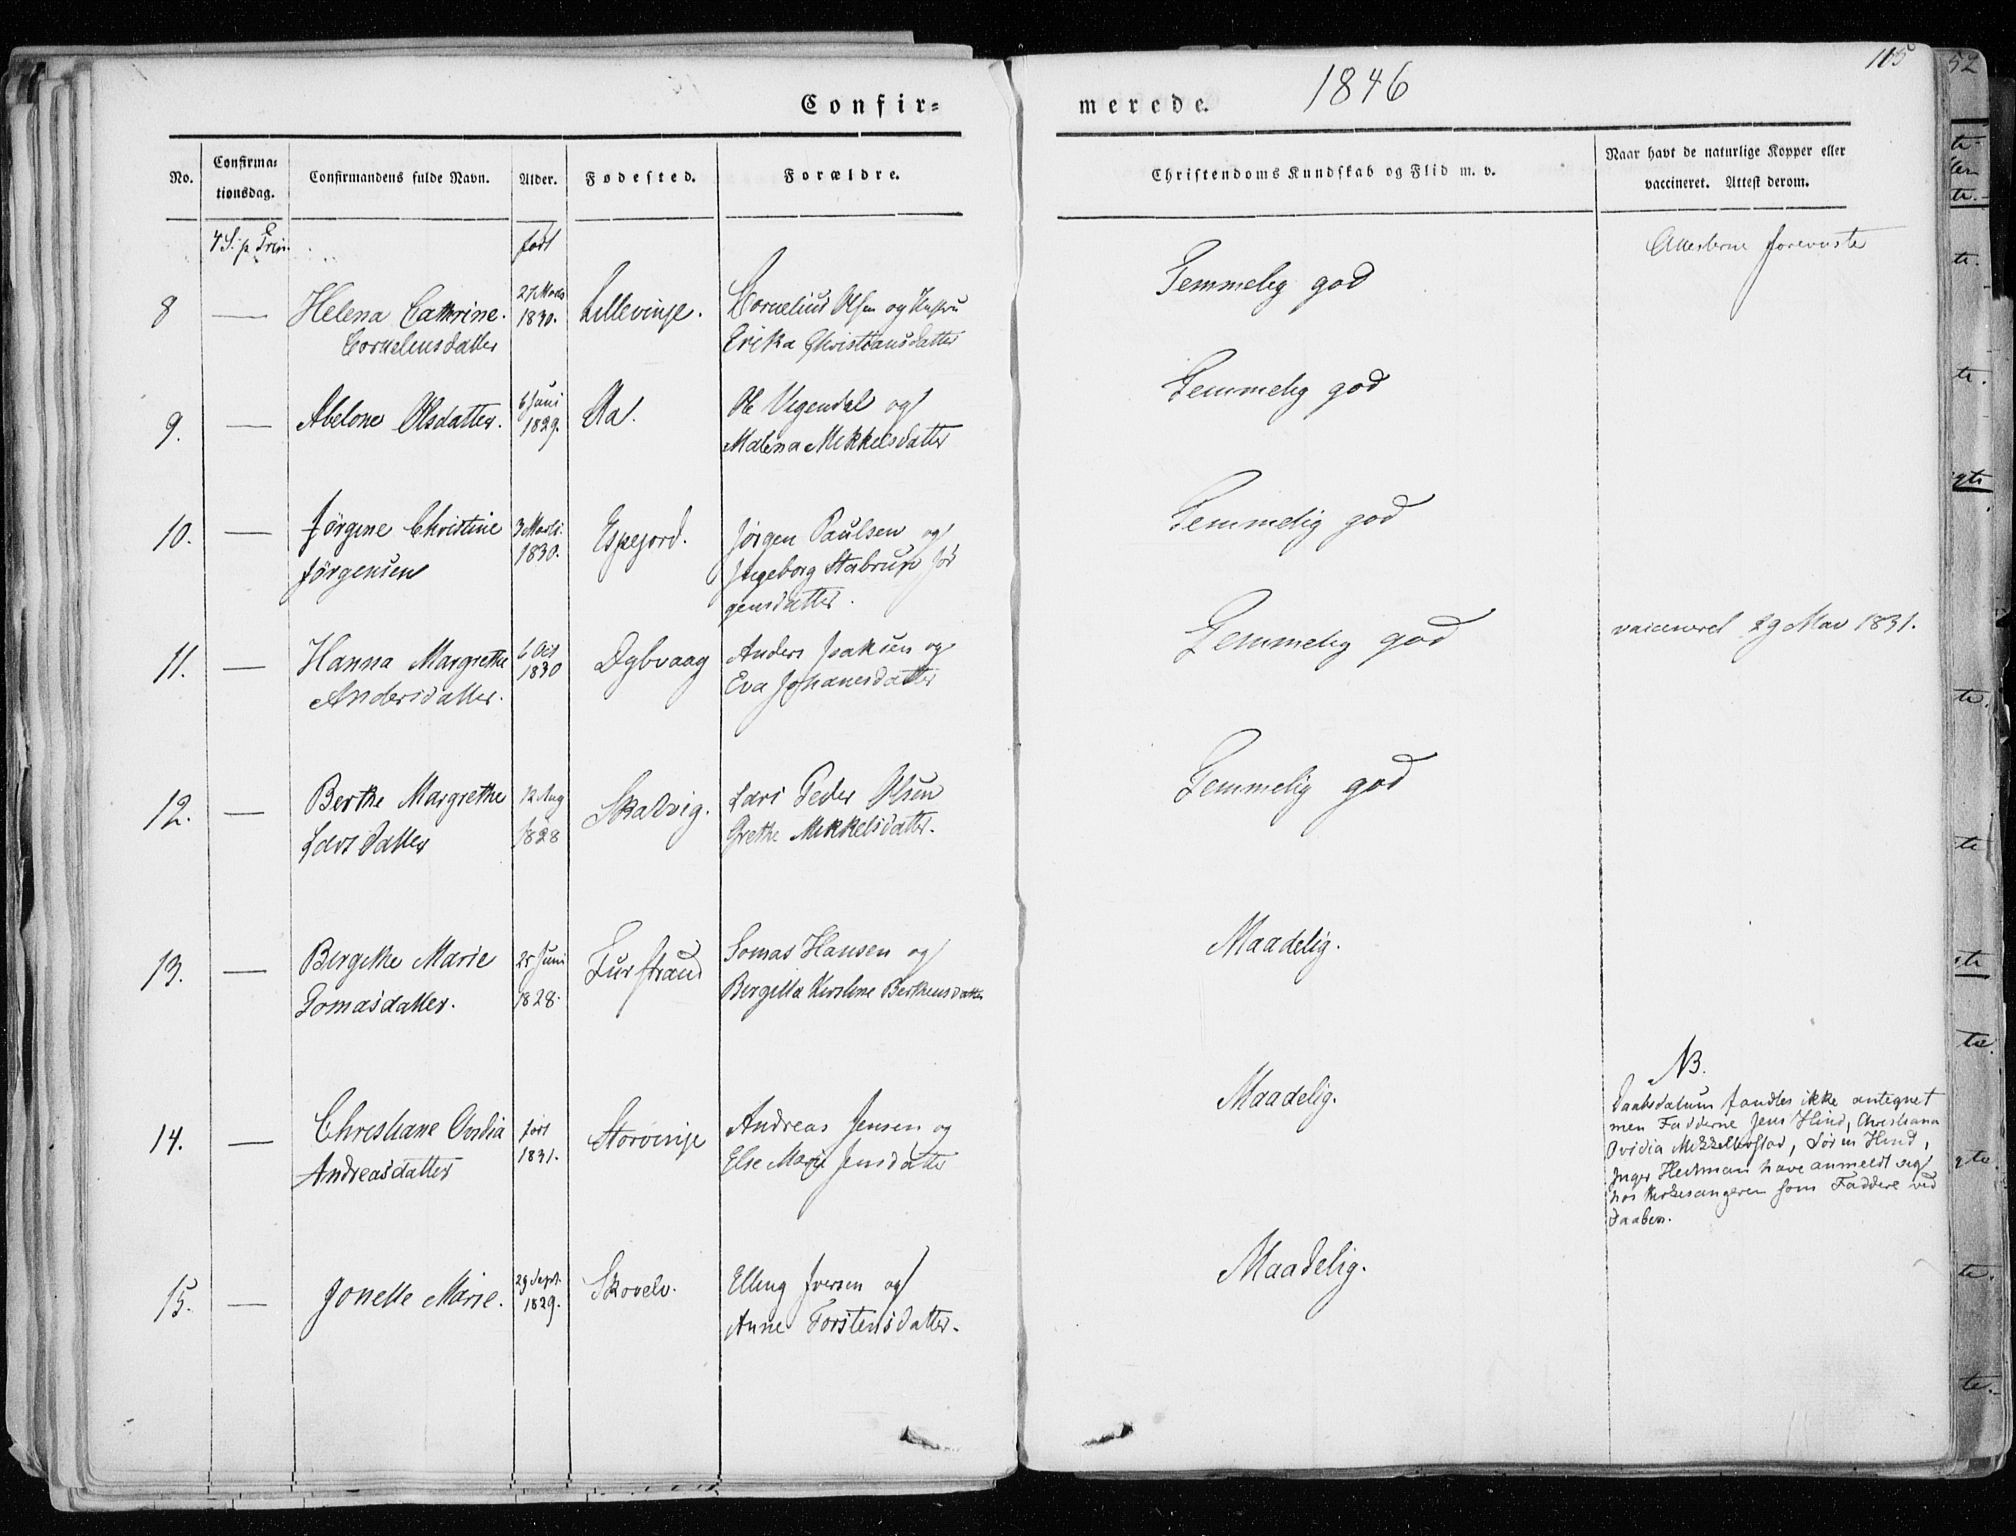 Confir=
merede.
1846
115
52
No.
Confirma=
tionsdag.
Confirmandens fulde Navn.
Alder.
Fødested.
Forældre.
Christendoms Kundskab og Flid m. v.
Naar havt de naturlige Kopper eller
vaccineret. Attest derom.
4 S. p Trin.
født
Attesterne foreviste
8
Helena Cathrine
Corneliusdatter
27 Marts
1830.
Lillevinje.
Cornelius Olsen og Hustru
Erika Christiansdatter
Temmelig god
9.
Abelone Olsdatter.
6 Juni
1829.
Aa.
Ole Vegendal og
Malena Mikkelsdatter
Temmelig god
10.
Jørgine Christine
Jørgensen
3 Marts.
1830.
Espejord.
Jørgen Paulsen og
Ingeborg Stabrun Jør
gensdatter.
Temmelig god
11.
Hanna Margrethe
Andersdatter.
6 Oct
1830
Dybvaag
Anders Isaksen og
Eva Johanesdatter
Temmelig god
vaccineret 29 Mav 1831.
12.
Berthe Margrethe
Larsdatter
12 Aug
1828
Skatvig.
Lars Peder Olsen
Grethe Mikkelsdatter.
Temmelig god
13.
Bergithe Marie
Tomasdatter.
25 Juni
1828.
Furstrand
Tomas Hansen og
Bergitta Kirstine Berthensdatter
Maadelig.
14.
Christiane Ovidia
Andreasdatter
født
1831.
Storvinje
Andreas Jensen og
Else Marie Jensdatter
Maadelig.
NB.
Daabsdatum fandtes ikke antegnet
men Fadderne Jens Hind, Christiana
Ovidia Mikkelborstad, Søren Hind,
Inger Heitman have anmeldt sig
hos Kirkesangeren som Faddere ved
Daaben.
15.
Jonette Marie.
29 Sept.
1829.
Skovelv.
Elling Iversen og
Anne Torstensdatter.
Maadelig.